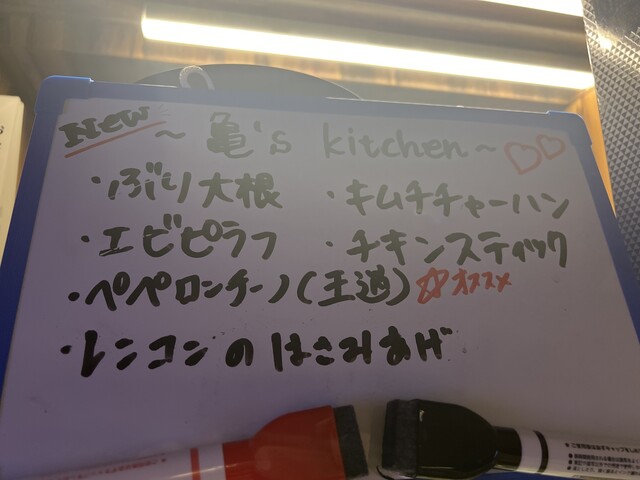 New ~亀's kitchen~
・ぶり大根 ・キムチチャーハン
・エビピラフ ・チキンスティック
・ペペロンチーノ(王道)☆オススメ
・レンコンのはさみあげ